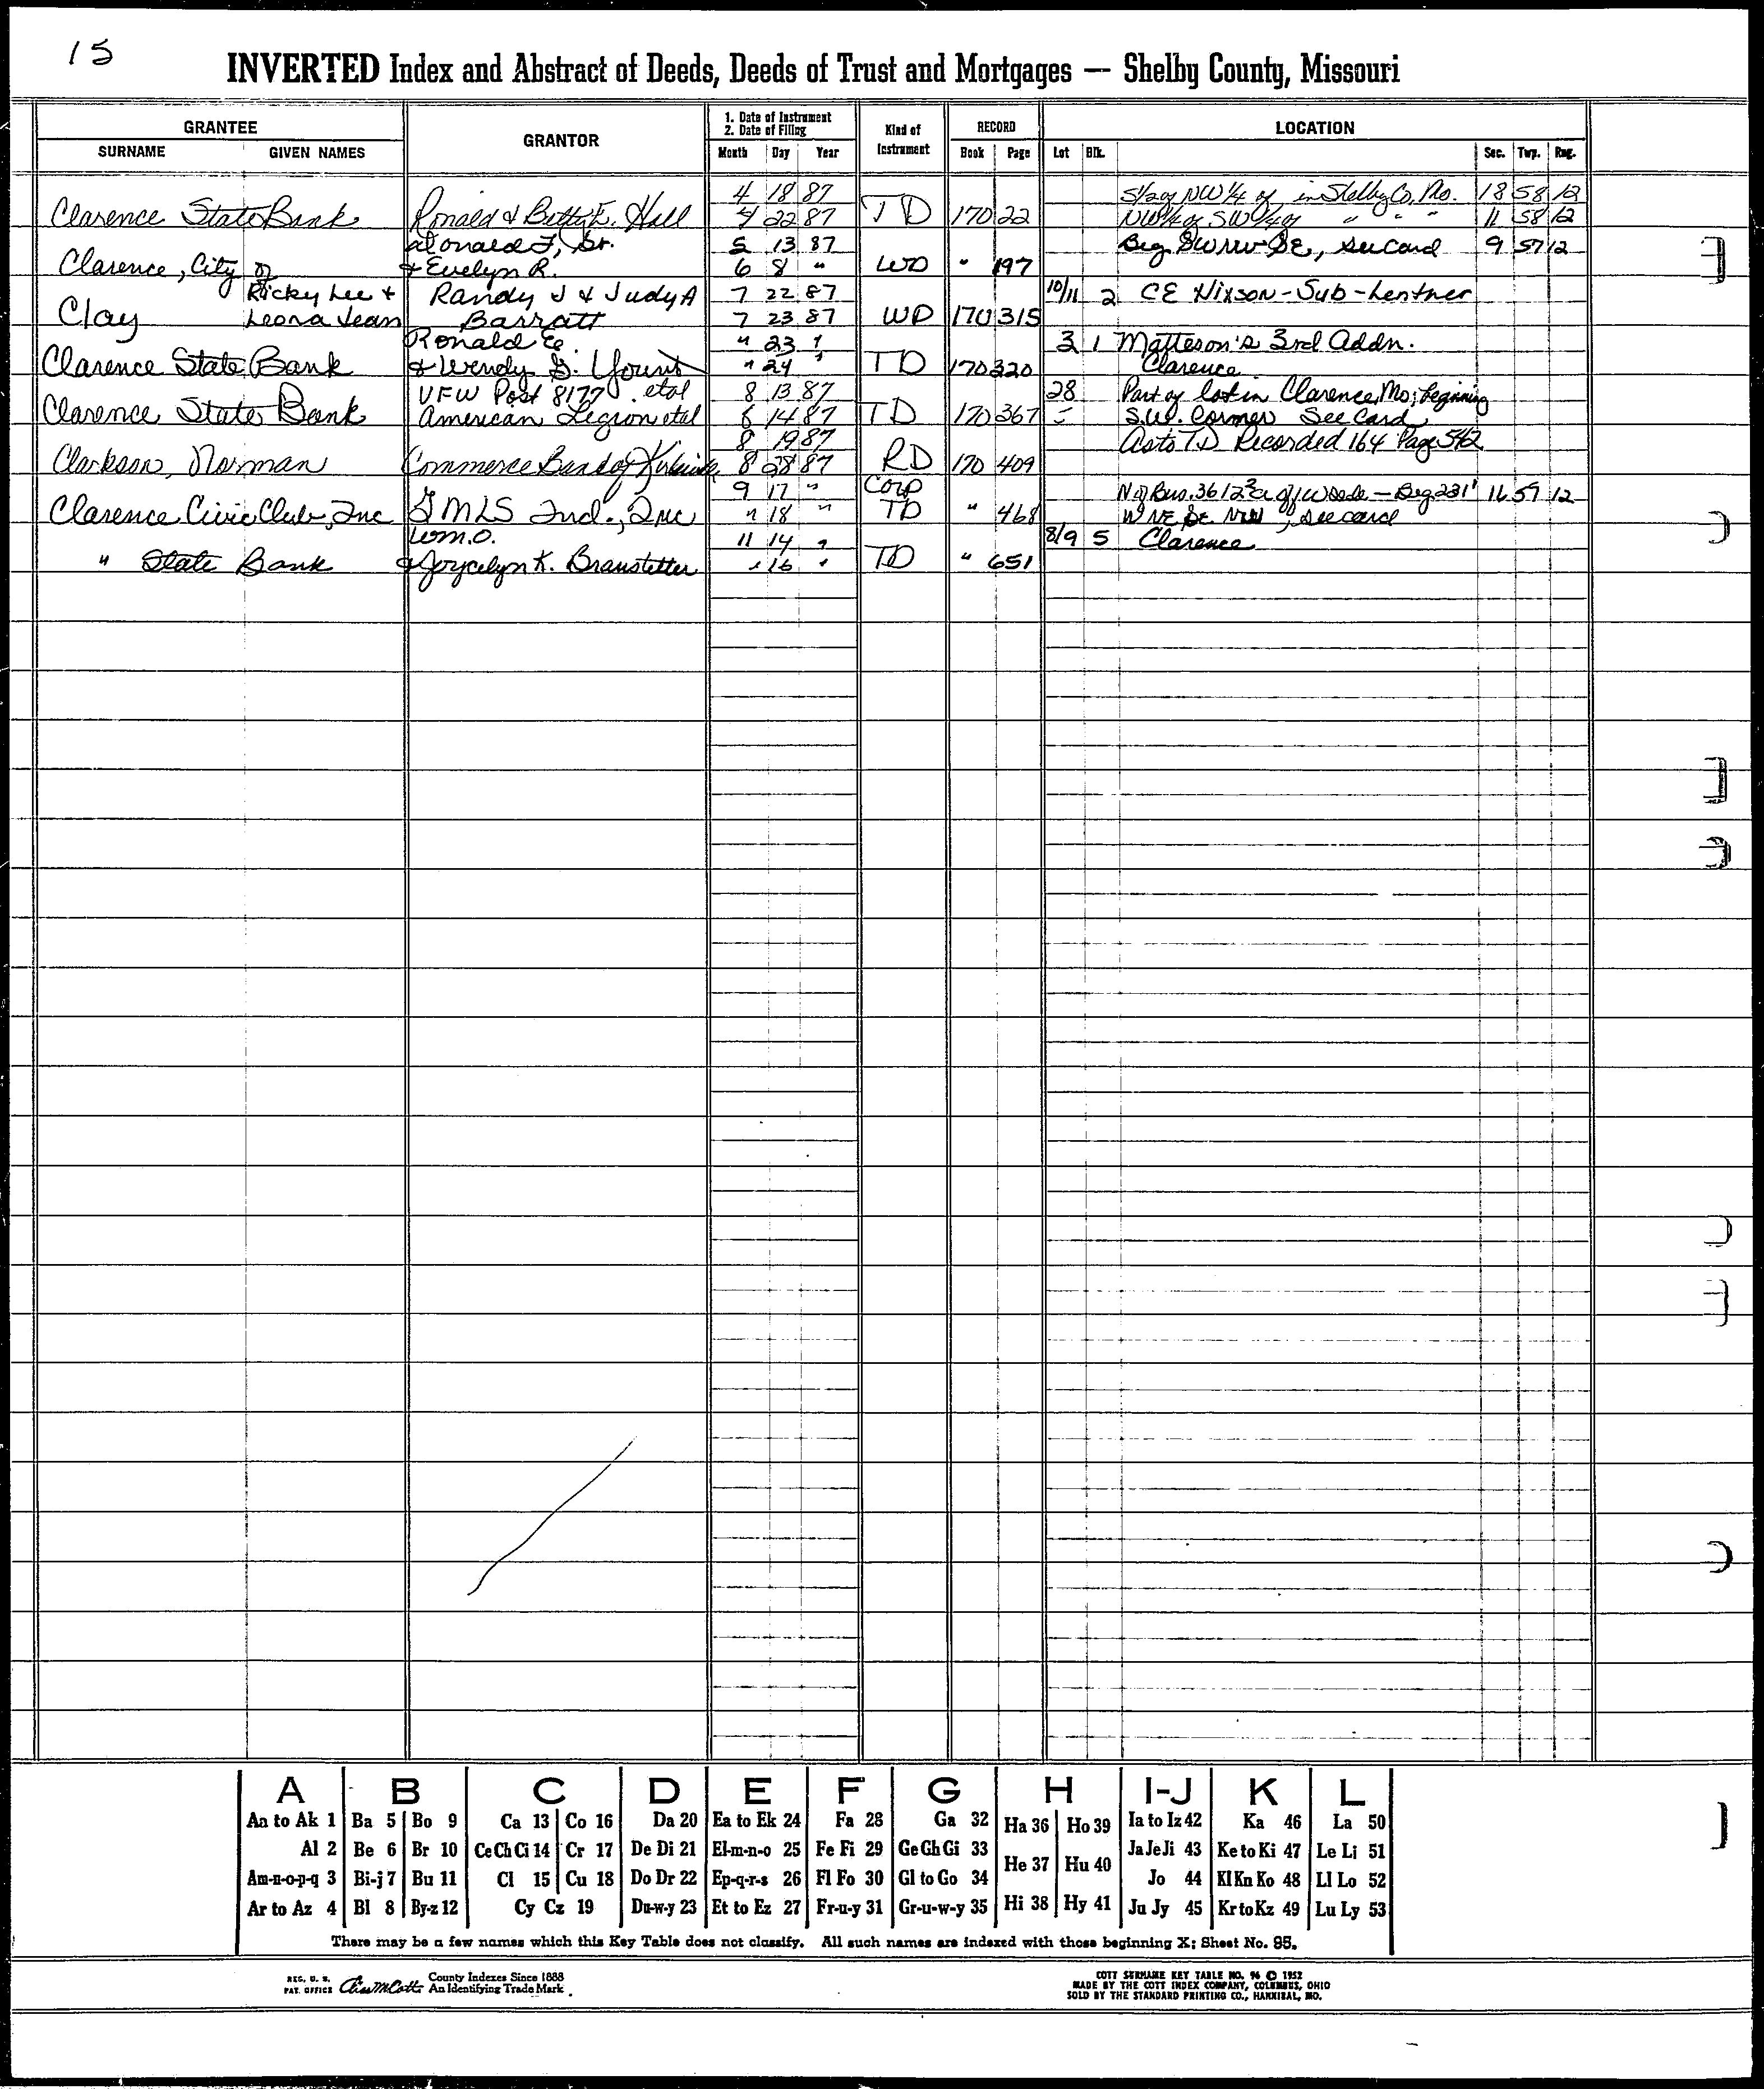 15
INVERTED Index and Abstract of Deeds, Deeds of Trust and Mortgages — Shelby County, Missouri
GRANTEE GRANTOR 1. Date of Instrument 2. Date of Filing Kind of Instrument RECORD LOCATION
SURNAME GIVEN NAMES Month Day Year Book Page Lot Blk. Sec. Twp. Rng.
4 18 87 S1/2 of NW 1/4 of in Shelby Co, Mo. 18 58 12
Clarence State Bank Ronald & Betty E. Hall 4 22 87 TD 170 22 NW1/4 of SW1/4 of " " " 11 58 12
Donald F, Sr. 5 13 87 Beg SW NW SE, see card 9 57 12
Clarence, City of & Evelyn R. 6 8 " WD " 197
Ricky Lee & Randy J & Judy A 7 22 87 10/11 2 CE Nixson-Sub-Lentner
Clay Leona Jean Barratt 7 23 87 WD 170 315
Ronald E. " 23 " 3 1 Matteson's 3rd Addn.
Clarence State Bank & Wendy G. Yount " 24 " TD 170 320 Clarence
VFW Post 8177 etal 8 13 87 28 Part of lot in Clarence, Mo; beginning
Clarence State Bank American Legion etal 8 14 87 TD 170 367 S.W. Corner See Card
8 19 87 As to TD Recorded 164 Page 542
Clarkson, Norman Commerce Bank of 8 28 87 RD 170 409
9 17 " Corp 231' 11 57 12
Clarence Civic Club, Inc GMLS Ind., Inc " 18 " TD " 468 W NE SE NW, see card
Wm. O. 11 14 " 8/9 5 Clarence
" State Bank & Joycelyn K. Branstetter " 16 " TD " 651
A B C D E F G H I-J K L
An to Ak 1 Ba 5 Bo 9 Ca 13 Co 16 Da 20 Ea to Ek 24 Fa 28 Ga 32 Ha 36 Ho 39 Ia to Iz 42 Ka 46 La 50
Al 2 Be 6 Br 10 Ce Ch Ci 14 Cr 17 De Di 21 El-m-n-o 25 Fe Fi 29 Ge Gh Gi 33 He 37 Hu 40 Ja Je Ji 43 Ke to Ki 47 Le Li 51
Am-n-o-p-q 3 Bi-j 7 Bu 11 Cl 15 Cu 18 Do Dr 22 Ep-q-r-s 26 Fl Fo 30 Gl to Go 34 Hi 38 Hy 41 Jo 44 Kl Kn Ko 48 Ll Lo 52
Ar to Az 4 Bl 8 By-z 12 Cy Cz 19 Du-w-y 23 Et to Ez 27 Fr-u-y 31 Gr-u-w-y 35 Ju Jy 45 Kr to Kz 49 Lu Ly 53
There may be a few names which this Key Table does not classify. All such names are indexed with those beginning X; Sheet No. 95.
REG. U. S. PAT. OFFICE County Indexes Since 1888 An Identifying Trade Mark
COTT SURNAME KEY TABLE NO. 96 © 1952
MADE BY THE COTT INDEX COMPANY, COLUMBUS, OHIO
SOLD BY THE STANDARD PRINTING CO., HANNIBAL, MO.